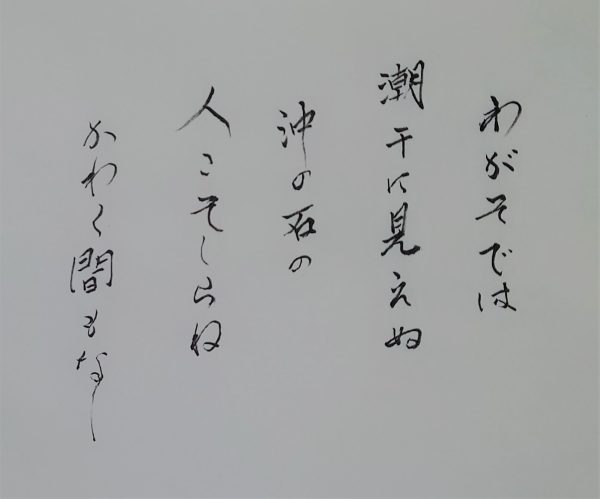 わがそでは
潮干に見えぬ
沖の石の
人こそしらね
かわく間もなし